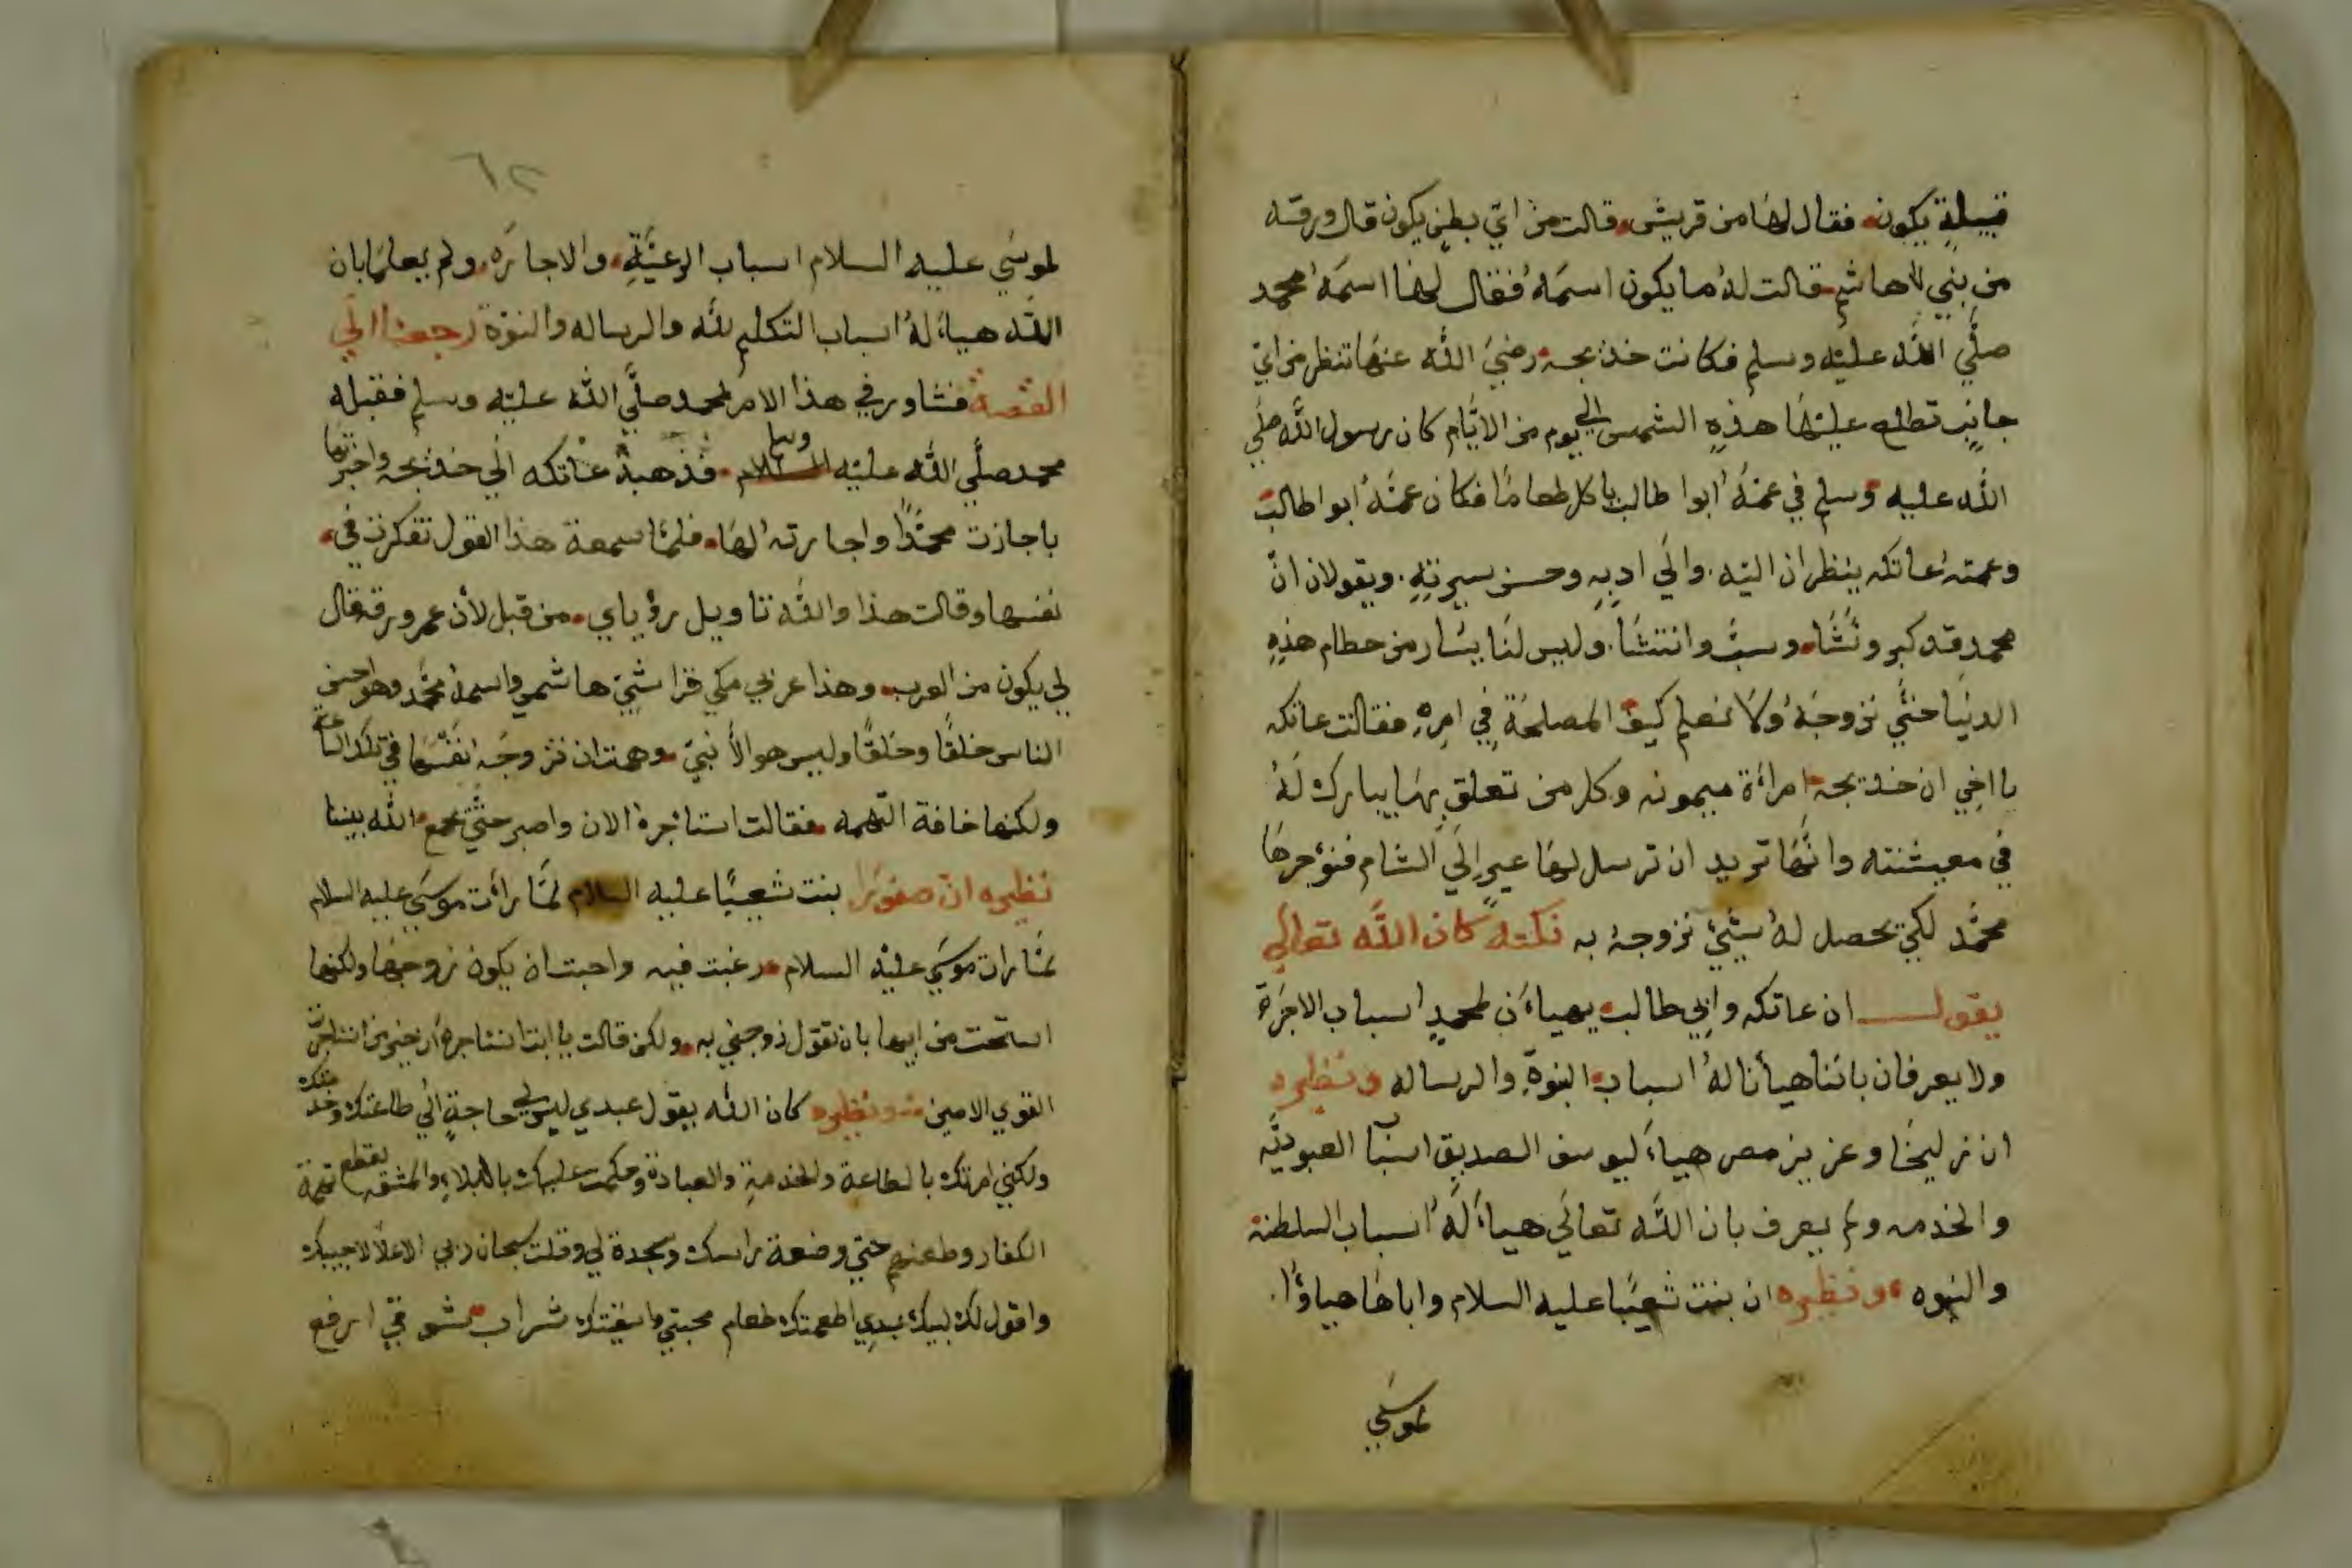 قبيلة يكون فقال لها من قريش قالت من اي بطن يكون قال ورقه
من بني هاشم قالت له ما يكون اسمه فقال لها اسمه محمد
صلي الله عليه وسلم فكانت خديجه رضي الله عنها تنظر من اي
جانب تطلع عليها هذه الشمس الي يوم من الايام كان رسول الله صلي
الله عليه وسلم في عمه ابوا طالب ياكل طعاما فكان عمه ابوا طالب
وعمته عاتكه ينظران اليه والي ادبه وحسن سيرته ويقولان ان
محمد قد كبر ونشا وسب وانتشا وليس لنا يسار من حطام هذه
الدنيا حتي نزوجه ولا نعلم كيف المصلحة في امره فقالت عاتكه
يا اخي ان خديجه امراة ميمونه وكل من تعلق بها يبارك له
في معيشته وانها تريد ان ترسل لها عيرا الي الشام فنؤجرها
محمد لكي يحصل له شيئ نزوجه به نكته كان الله تعالي
يقول ان عاتكه وابي طالب يهياءن لمحمد اسباب الاجرة
ولا يعرفان باننا هيأنا له اسباب النبوة والرساله ونظيره
ان زليخا وعزيز مصر هياء ليوسف الصديق اسباب العبوديه
والخدمه ولم يعرف بان الله تعالي هياء له اسباب السلطنة
والنبوه ونظيره ان بنت شعيبا عليه السلام واباها هياؤا
لموسي
٦٢
لموسي عليه السلام اسباب الرعية والاجاره ولم يعلما بان
الله هياء له اسباب التكليم لله والرساله والنبوة رجعنا الي
القصة فشاور في هذا الامر لمحمد صلي الله عليه وسلم فقبله
محمد صلي الله عليه وسلم فذهبة عاتكه الي خديجه واخبرتها
باجازت محمدا واجارته لها فلما سمعة هذا القول تفكرت في
نفسها وقالت هذا والله تاويل رؤياي من قبل لأن عمر ورقة قال
لي يكون من العرب وهذا عربي مكي قراشي هاشمي واسمه محمد وهو احسن
الناس خلقا وخلقا وليس هو الا نبي وهمت ان تزوجه نفسها في تلك الساعة
ولكنها خافة التهمه فقالت استاجره الان واصبر حتي يجمع الله بيننا
نظيره ان صفورا بنت شعيبا عليه السلام لما رأت موسي عليه السلام
لما رات موسي عليه السلام رغبت فيه واحبت ان يكون زوجها ولكنها
استحت من ابيها بان تقول زوجني به ولكن قالت يا ابت استاجره ان خير من استاجرت
القوي الامين ونظيره كان الله يقول عبدي ليس لي حاجة الي طاعتك وخدمتك
ولكني امرتك بالطاعة والخدمة والعبادة وحكمت عليك بالبلاء والمشقه يقطع تهمة
الكفار وطعنهم حتي وضعة راسك وسجدة لي وقلت سبحان ربي الاعلا لاجيبك
واقول لك لبيك عبدي اطعمتك طعام محبتي واسقيتك شراب شوقي ارفع